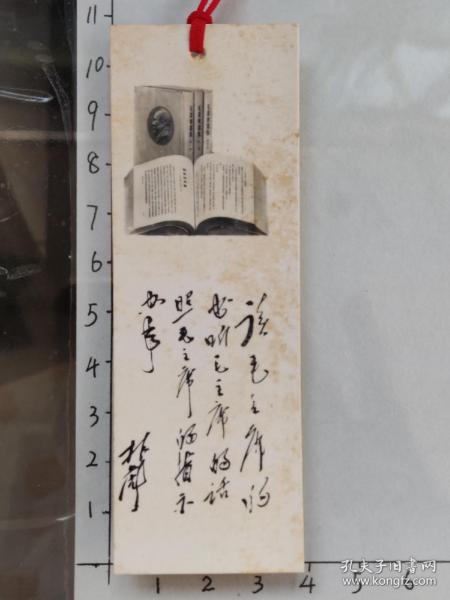 读毛主席的
书听毛主席的话
照毛主席的指示
办事
林彪
11
10
9
8
7
6
5
4
3
2
1
1
2
3
4
5
6
孔夫子旧书网
www.kongfz.com